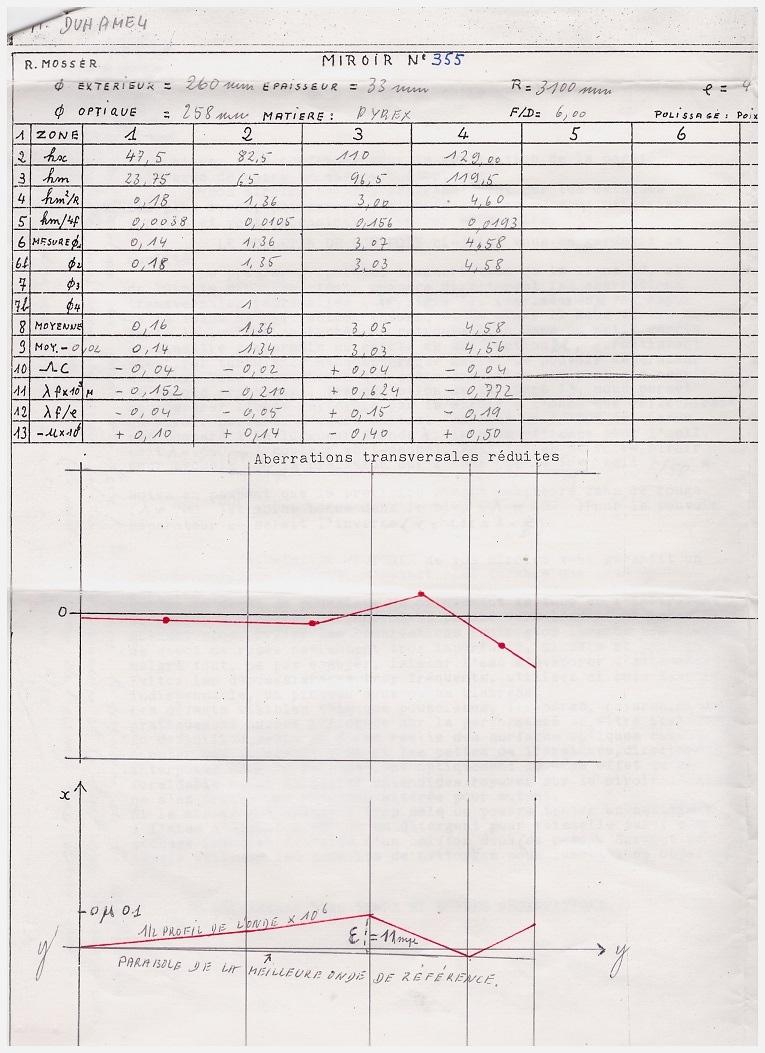 DUHAMEL
R. MOSSER. MIROIR N° 355
φ EXTERIEUR = 260 mm EPAISSEUR = 33 mm R = 3100 mm e = 4
φ OPTIQUE = 258 mm MATIERE: PYREX F/D= 6,00 POLISSAGE: POIX
1 ZONE 1 2 3 4 5 6
2 hx 47,5 82,5 110 129,00
3 hm 23,75 65 96,5 119,5
4 hm²/R 0,18 1,36 3,00 4,60
5 hm/4f 0,0038 0,0105 0,156 0,0193
6 MESURE φ1 0,14 1,36 3,07 4,58
6b φ2 0,18 1,35 3,03 4,58
7 φ3
7b φ4 1
8 MOYENNE 0,16 1,36 3,05 4,58
9 MOY. - 0,02 0,14 1,34 3,03 4,56
10 ΛC - 0,04 - 0,02 + 0,04 - 0,04
11 λf×10³ μ - 0,152 - 0,210 + 0,624 - 0,772
12 λf/e - 0,04 - 0,05 + 0,15 - 0,19
13 -u×10⁶ + 0,10 + 0,14 - 0,40 + 0,50
Aberrations transversales réduites
0
x
0μ 0.1
1/2 PROFIL DE L'ONDE × 10⁶
ε = 11 mμ
y' y
PARABOLE DE LA MEILLEURE ONDE DE RÉFÉRENCE.